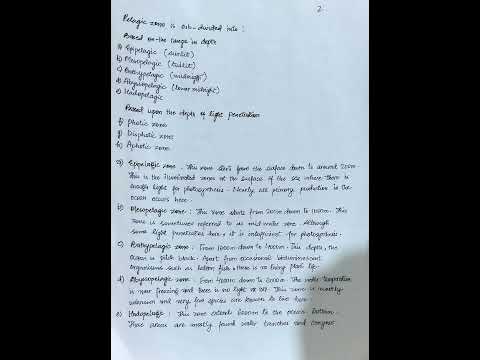 2
Pelagic zone is sub-divided into :
Based on the range in depth
a) Epipelagic (sunlit)
b) Mesopelagic (twilit)
c) Bathypelagic (midnight)
d) Abyssopelagic (lower midnight)
e) Hadopelagic
Based upon the depth of light penetration
f) Photic zone
g) Disphotic zone
h) Aphotic zone
a) Epipelagic zone : This zone starts from the surface down to around 200m
This is the illuminated zone at the surface of the sea where there is
enough light for photosynthesis. Nearly all primary production in the
ocean occurs here.
b) Mesopelagic zone : This zone starts from 200m down to 1000m. This
zone is sometimes referred to as mid-water zone. Although
some light penetrates here, it is insufficient for photosynthesis.
c) Bathypelagic zone : From 1000m down to 4000m. This depth, the
ocean is pitch black. Apart from occasional bioluminescent
organisms such as lantern fish, there is no living plant life.
d) Abyssopelagic zone : From 4000m down to 6000m. The water temperature
is near freezing and there is no light at all. This zone is mostly
unknown and very few species are known to live here.
e) Hadopelagic : This zone extends 6000m to the oceans bottom.
These areas are mostly found water trenches and canyons